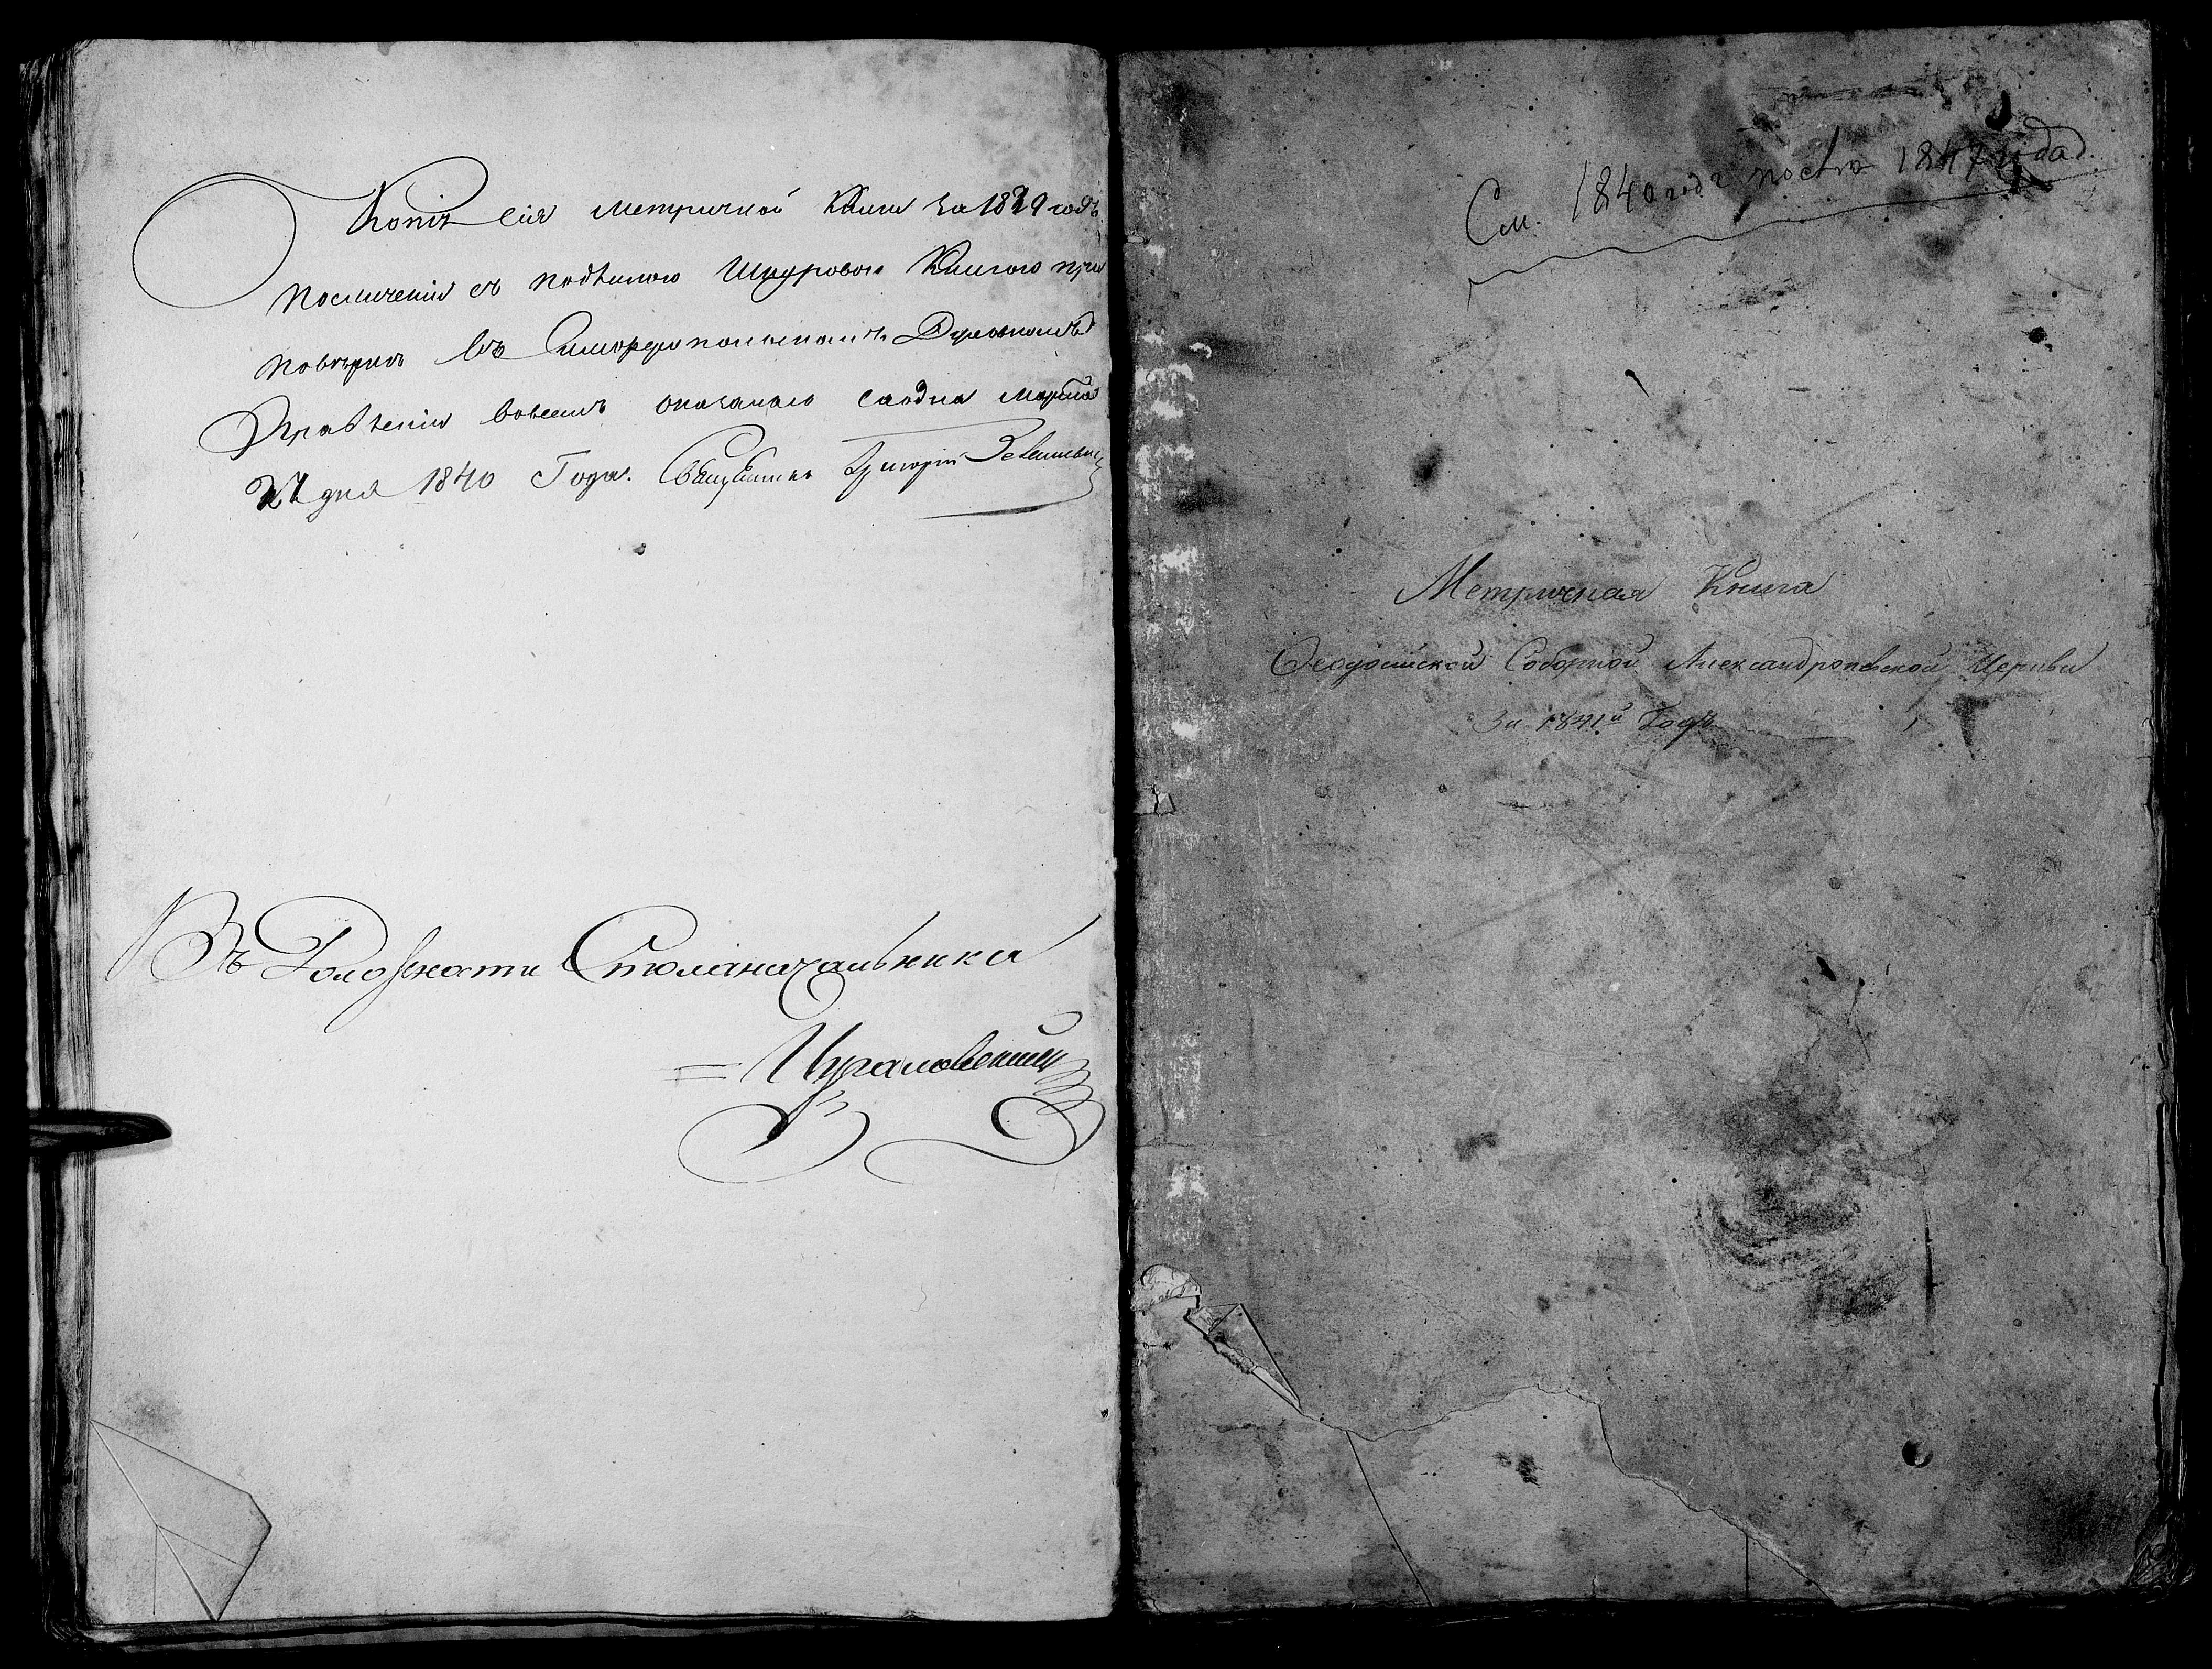 Копія сія метричкой Книги за 1839 годъ
по сличеніи съ подлиною Шнуровою Книгою при
повѣркѣ въ Симферопольскомъ Духовномъ
Правленіи вовсемъ оказалась сходна Марта
27 дня 1840 Года. Священникъ Григорій
Въ Должности Столоначальника
См. 1840 годъ послѣ 1847 года
Метрическая Книга
Феодосійской Соборной Александроневской Церкви
За 1841й Годъ